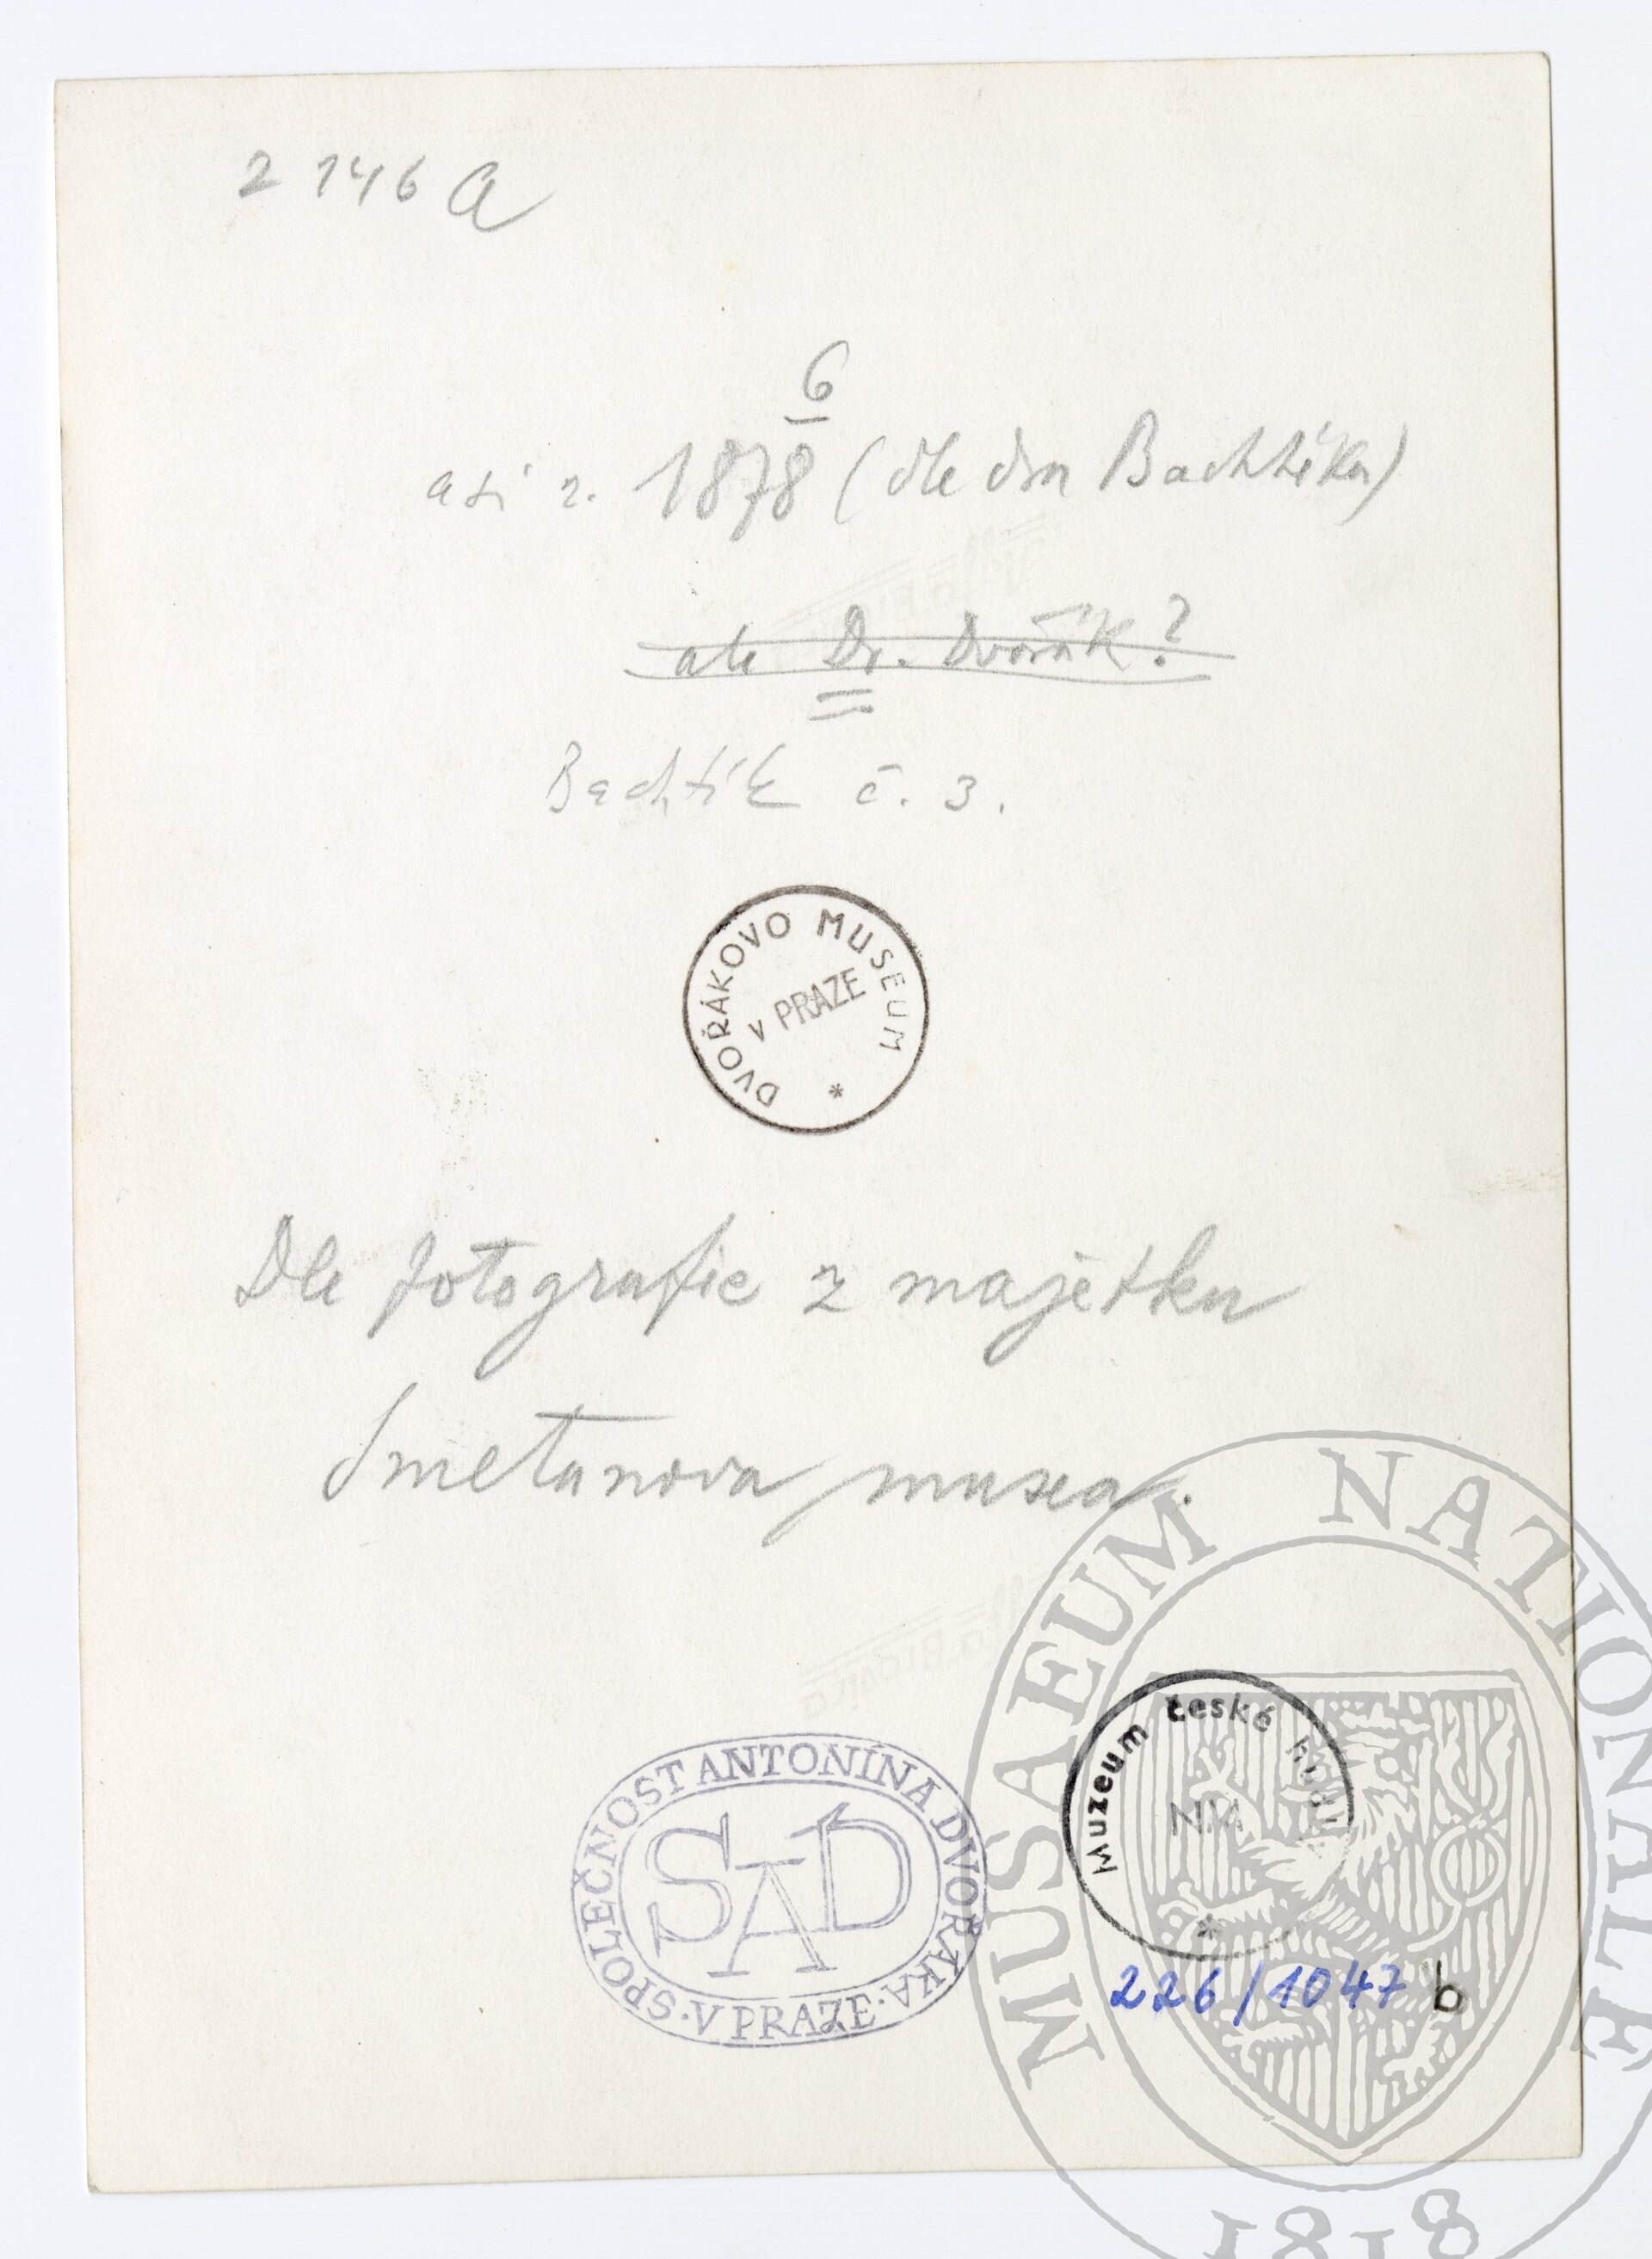 2146 A
6
asi r. 1878 (dle dra Bachtíka)
ale Dr. Dvořák?
Bachtík č. 3.
DVOŘÁKOVO MUSEUM
v PRAZE
*
Dle fotografie z majetku
Smetanova musea.
MUSAEUM NATIONALE
Muzeum české hudby
NM
*
SPOLEČNOST ANTONÍNA DVOŘÁKA · V PRAZE ·
SAD
226/1047 b
1818